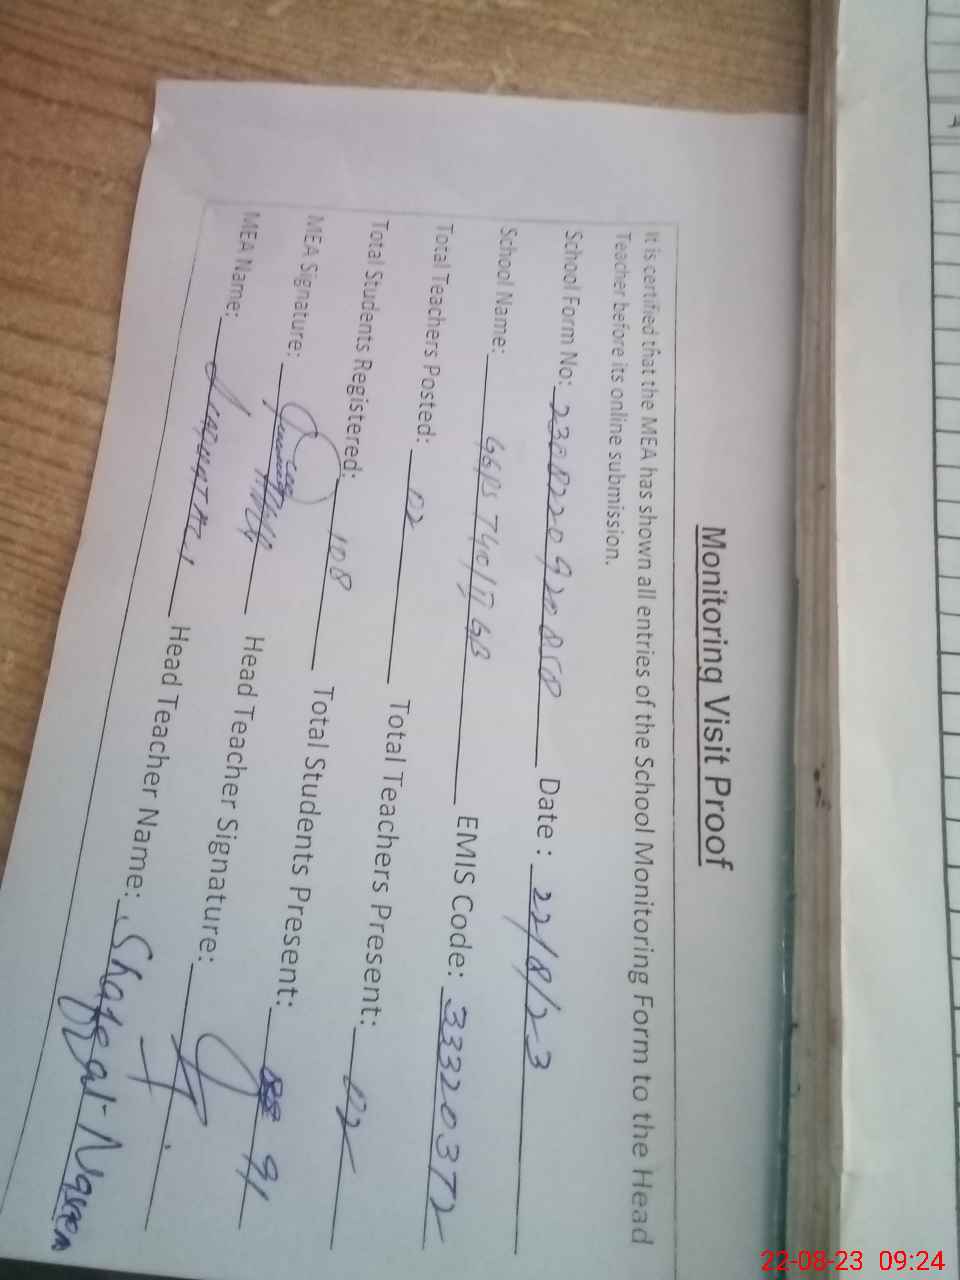 Monitoring Visit Proof
It is certified that the MEA has shown all entries of the School Monitoring Form to the Head
Teacher before its online submission.
School Form No: Date : 22/8/23
School Name: GGPS 740/17 GB EMIS Code: 33320372
Total Teachers Posted: 02 Total Teachers Present: 02
Total Students Registered: 108 Total Students Present: 91
MEA Signature: Head Teacher Signature:
MEA Name: Head Teacher Name:
22-08-23 09:24